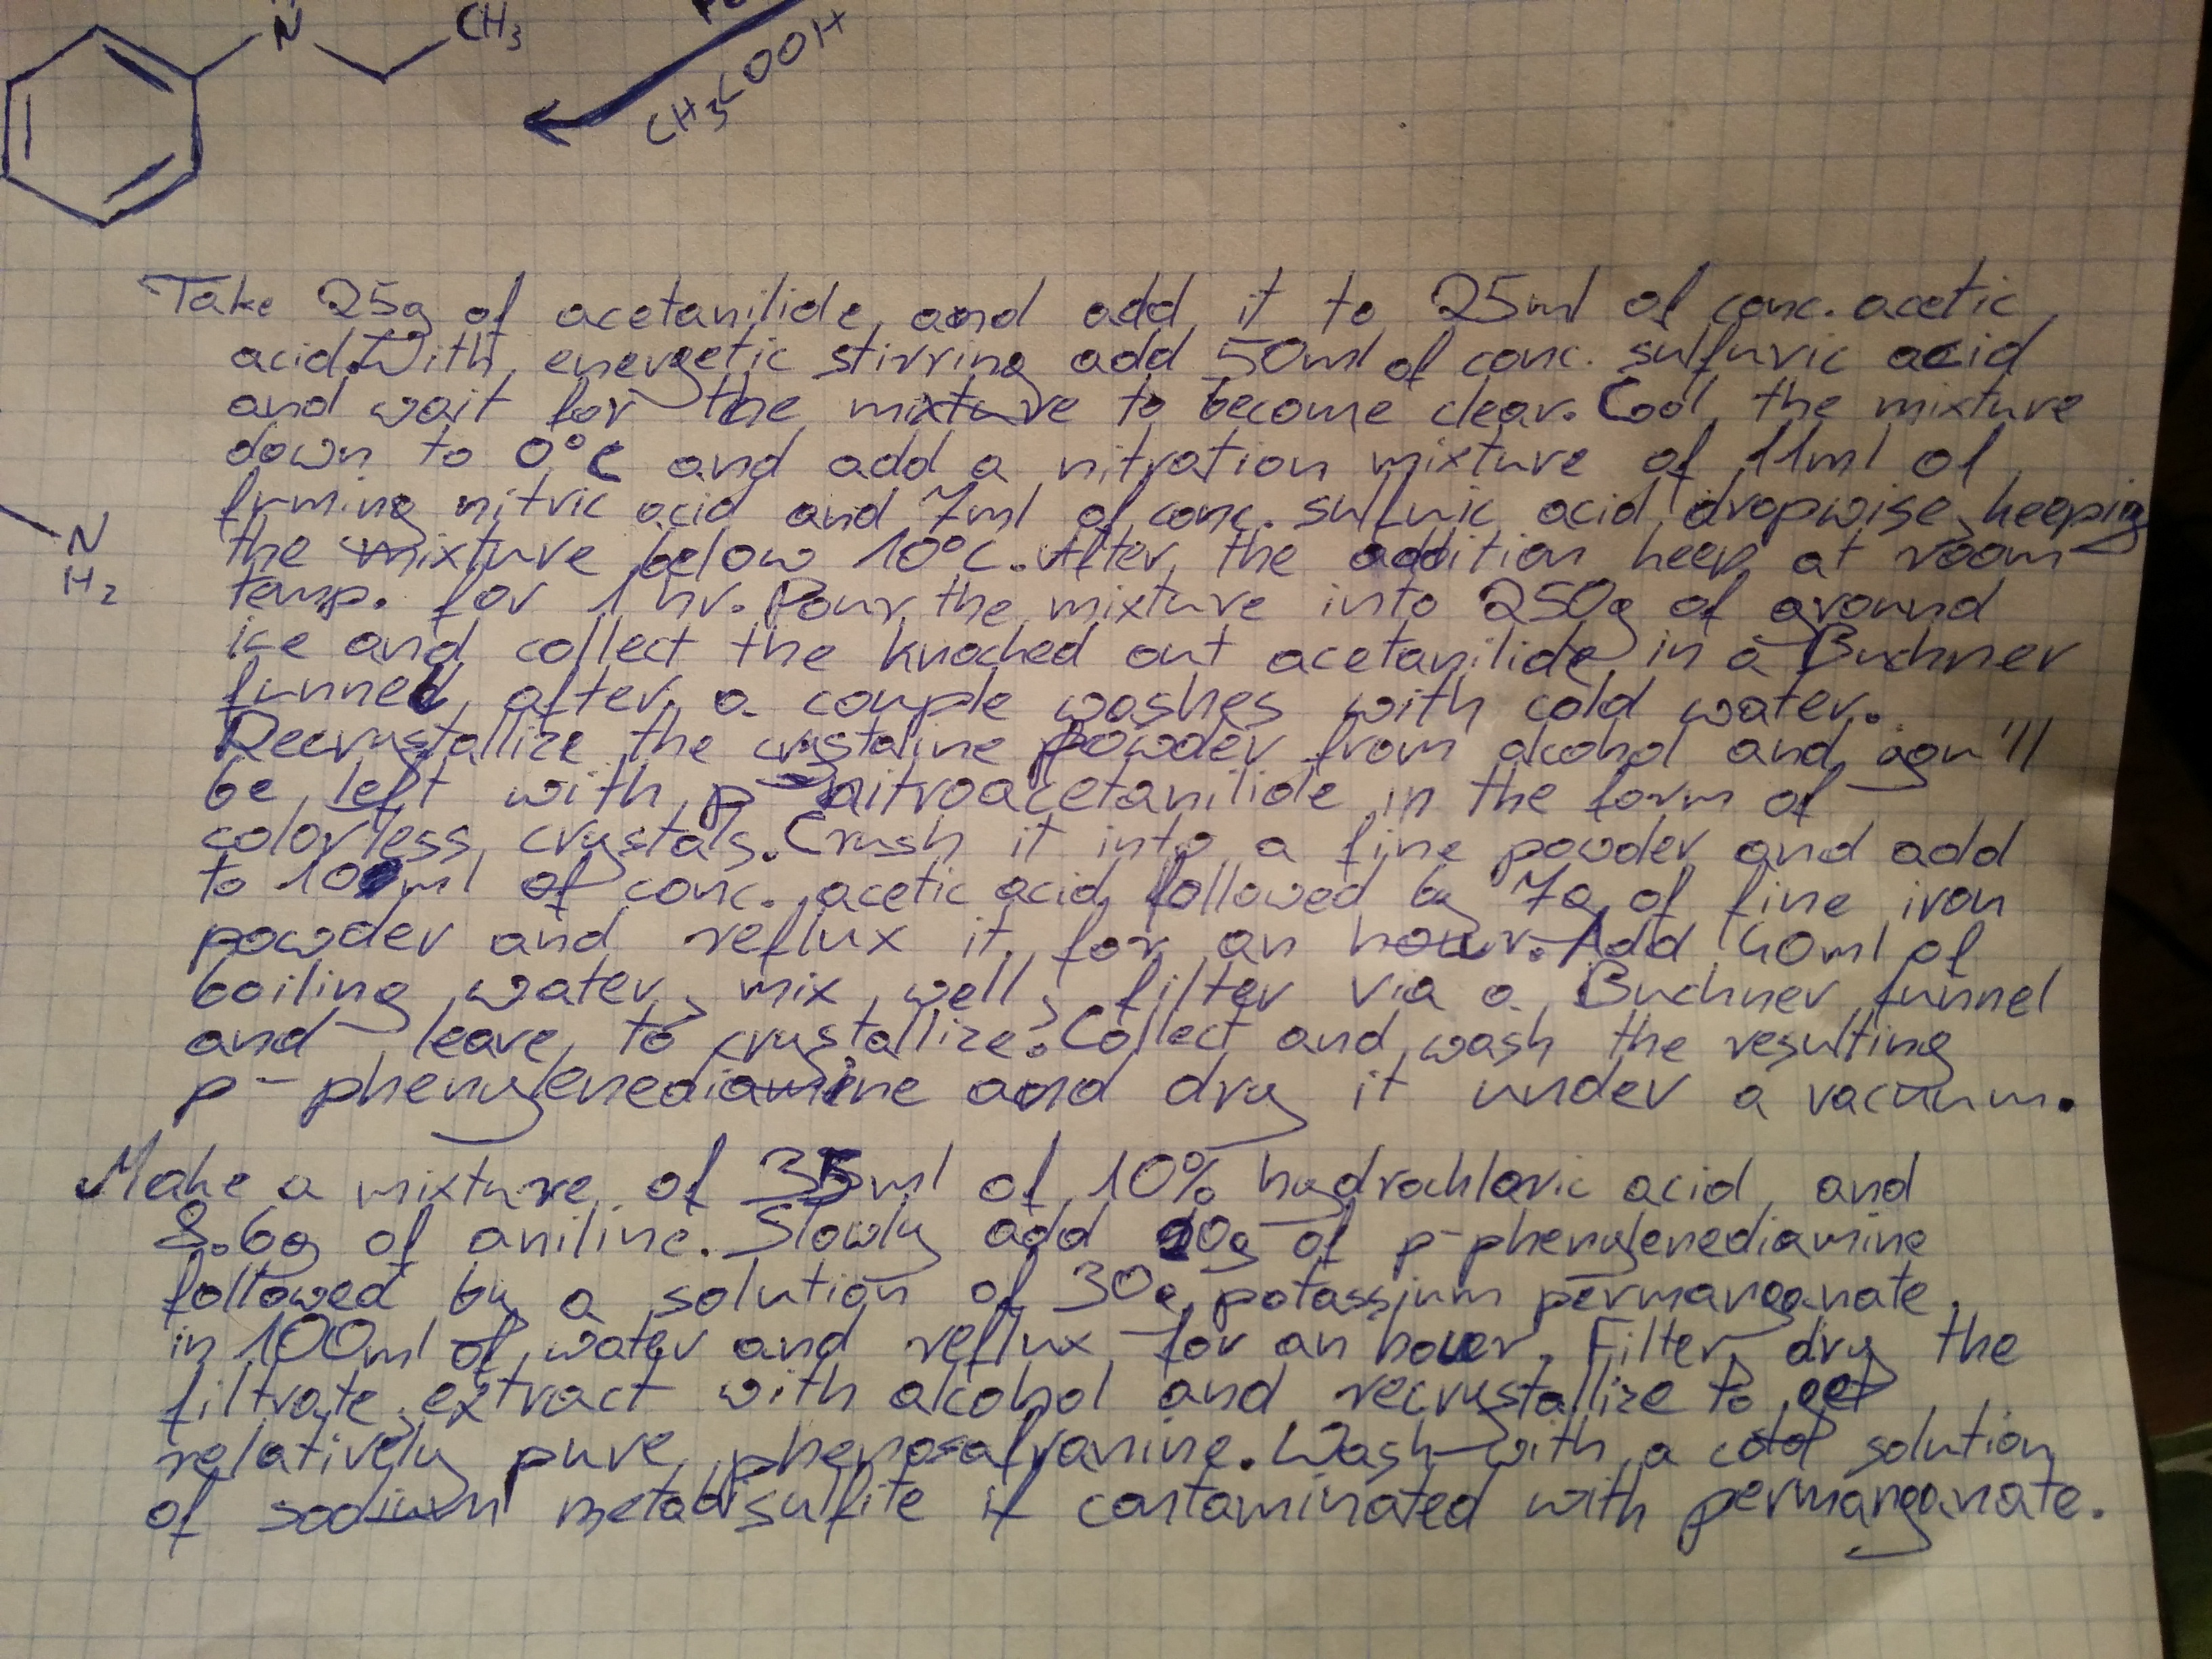 N CH3
CH3COOH
N
H2
Take 25g of acetanilide, and add it to 25ml of conc. acetic
acid. With energetic stirring add 50ml of conc. sulfuric acid
and wait for the mixture to become clear. Cool the mixture
down to 0°C and add a nitration mixture of 11ml of
fuming nitric acid and 7ml of conc. sulfuric acid dropwise, keeping
the mixture below 10°C. After the addition keep at room
temp. for 1 hr. Pour the mixture into 250g of ground
ice and collect the knocked out acetanilide in a Buchner
funnel after a couple washes with cold water.
Recrystallize the crystaline powder from alcohol and you'll
be left with p-nitroacetanilide in the form of
colorless crystals. Crush it into a fine powder and add
to 100ml of conc. acetic acid, followed by 7g of fine iron
powder and reflux it for an hour. Add 40ml of
boiling water, mix well, filter via a Buchner funnel
and leave to crystallize. Collect and wash the resulting
p-phenylenediamine and dry it under a vacuum.
Make a mixture of 35ml of 10% hydrochloric acid and
8.6g of aniline. Slowly add 20g of p-phenylenediamine
followed by a solution of 30g potassium permanganate
in 100ml of water and reflux for an hour. Filter, dry the
filtrate, extract with alcohol and recrystallize to get
relatively pure phenosafranine. Wash with a cold solution
of sodium metabisulfite if contaminated with permanganate.